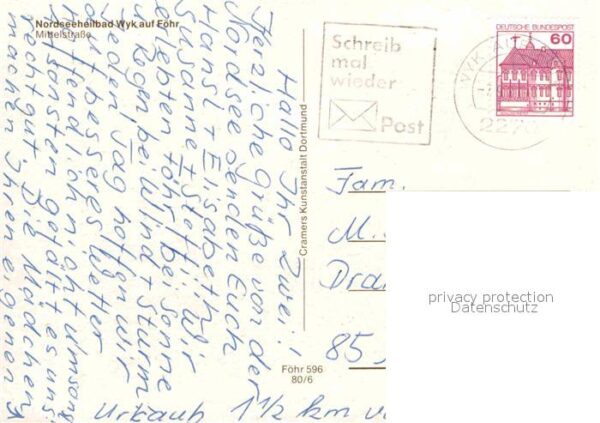 Nordseeheilbad Wyk auf Föhr
Mittelstraße
Hallo Ihr Zwei!
Herzliche Grüße von der
Nordsee senden Euch
Hansi + Elisabeth
Susanne + Steffi. Wir
erlebten Föhr bei Sonne
u. Regen, bei Wind + Sturm
Jeden Tag hoffen wir
auf besseres Wetter
hoffendlich nicht umsonst
Ansonsten gefällt es uns
recht gut. Die Mädchen
machen ihren eigenen
Urlaub 1½ km
Cramers Kunstanstalt Dortmund
Föhr 596
80/6
Schreib
mal
wieder
Post
DEUTSCHE BUNDESPOST
60
WYK AUF
2270
Fam.
M.
85
privacy protection
Datenschutz